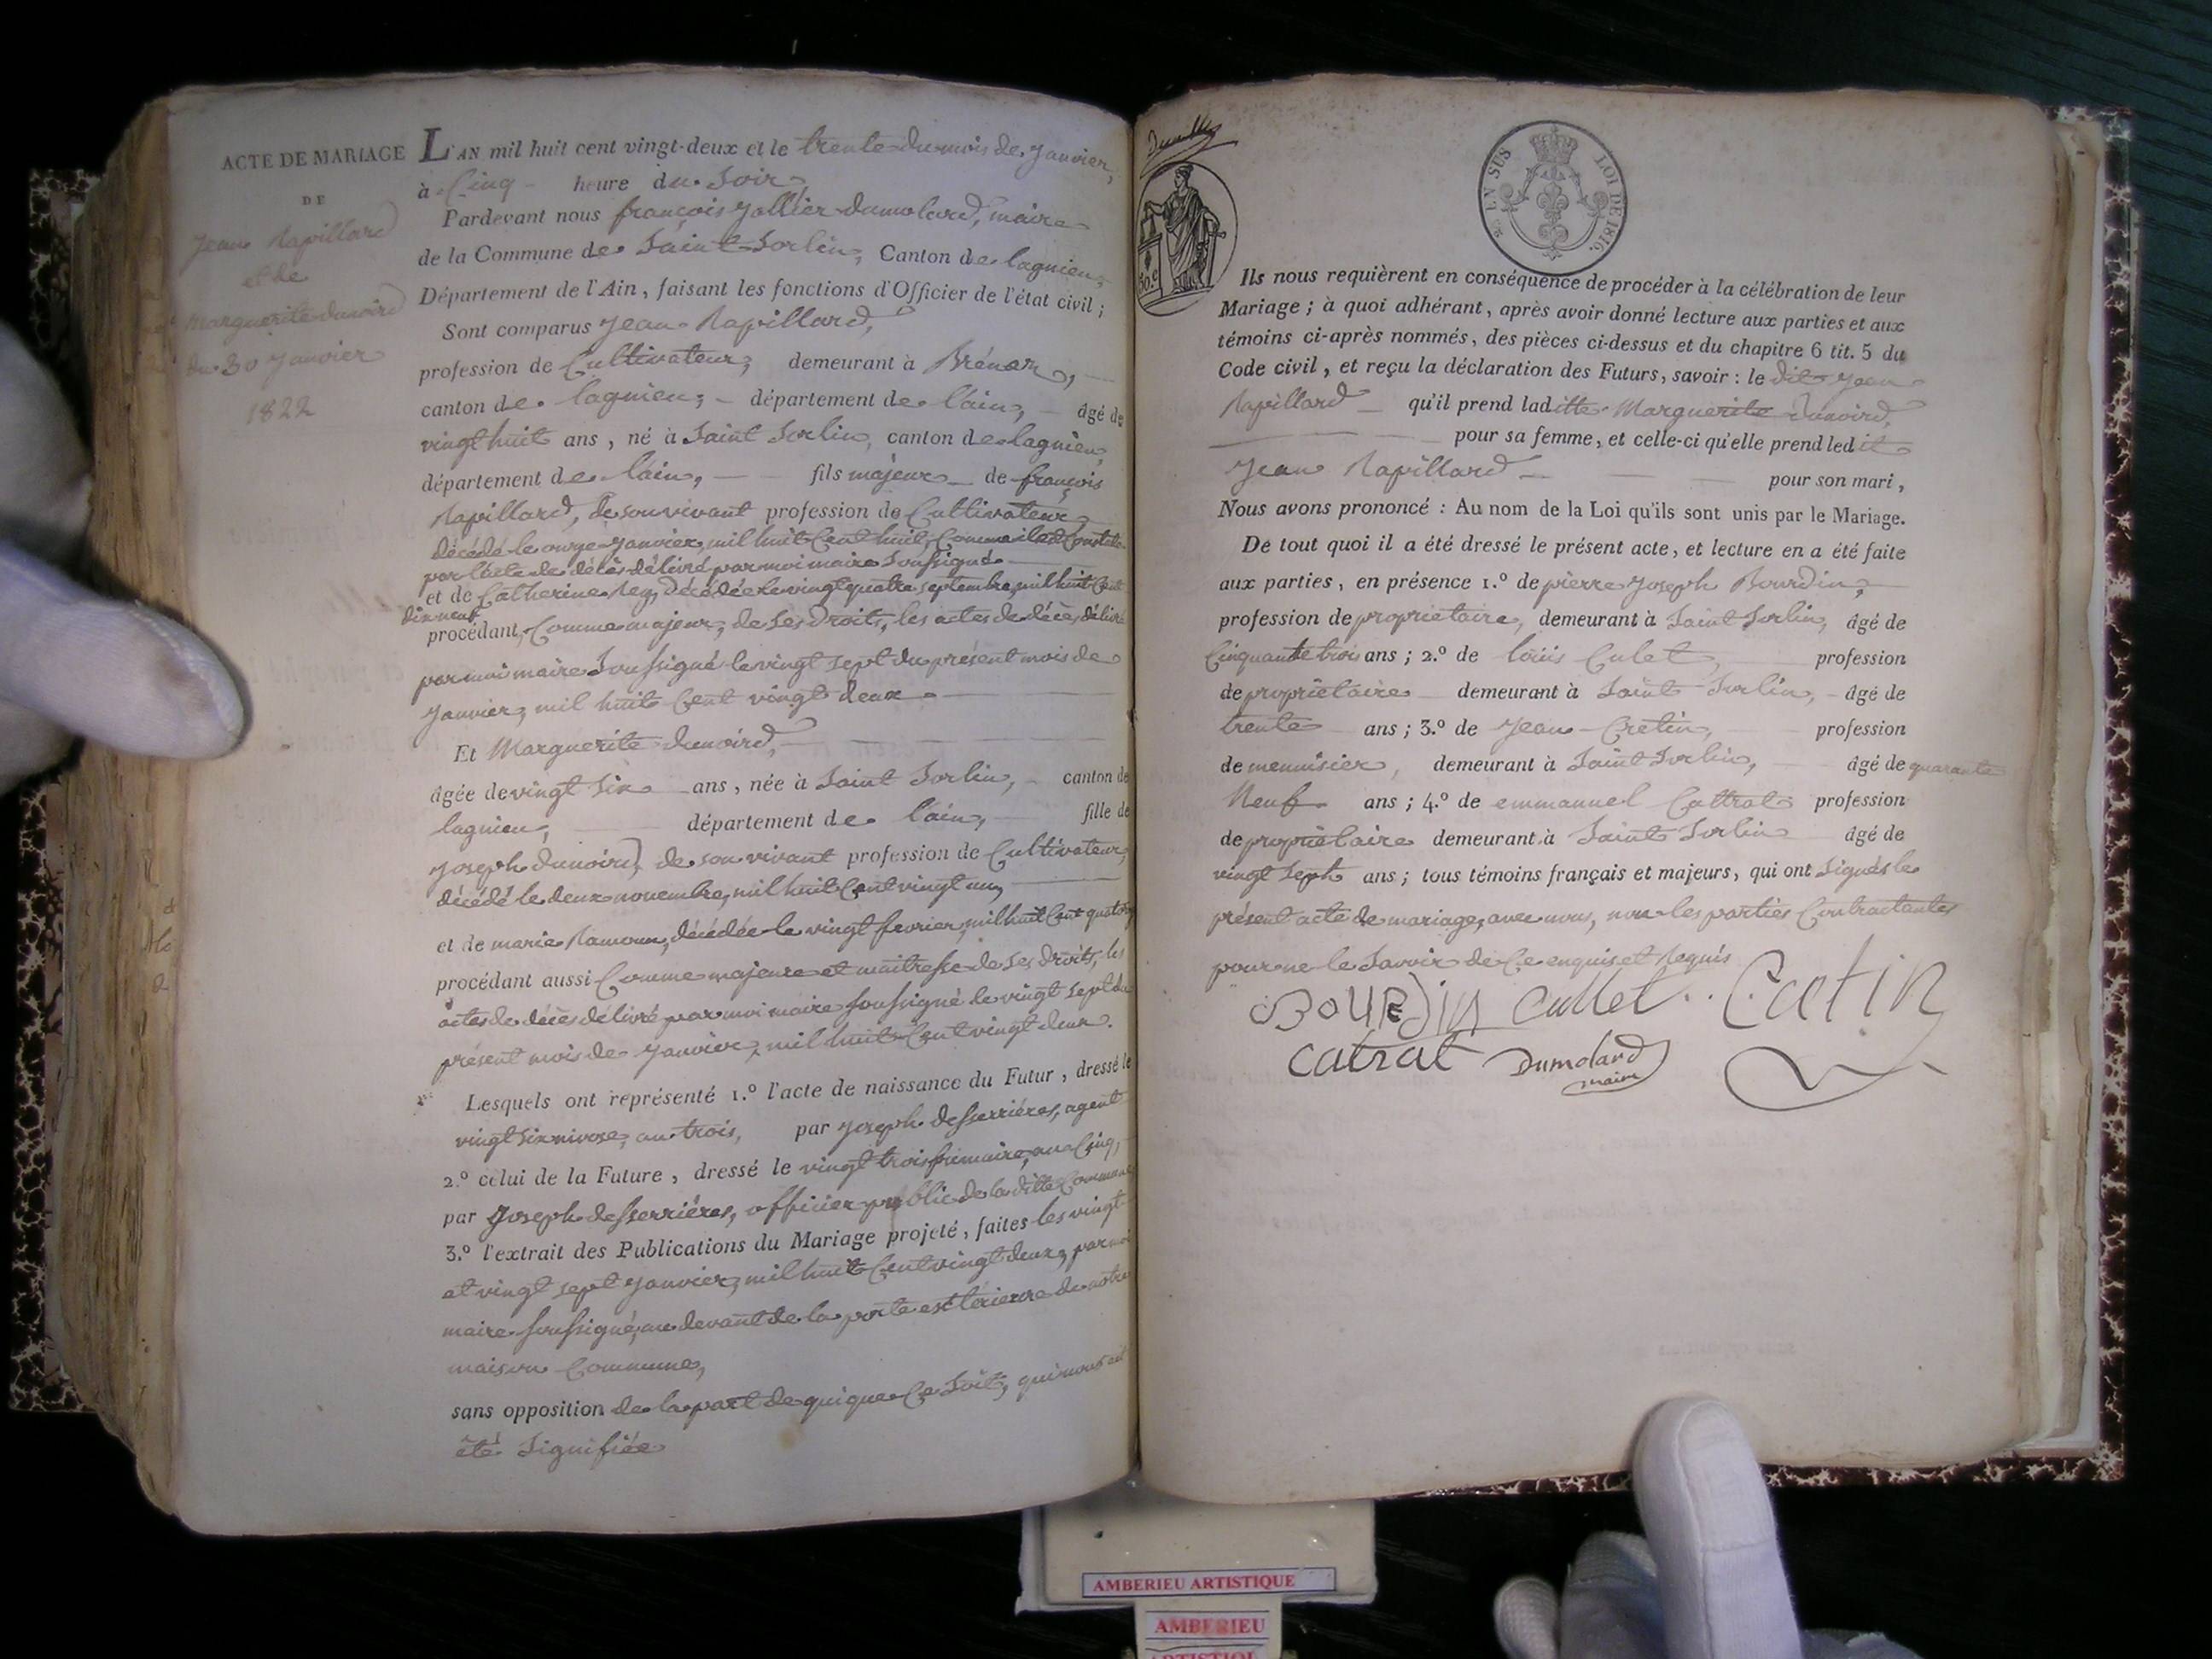 ACTE DE MARIAGE
DE
Jean Rapillard
et de
Marguerite dunoird
du 30 Janvier
1822
L'AN mil huit cent vingt-deux et le trente du mois de Janvier,
à Cinq heure du Soir
Pardevant nous françois Jallier Dumolard, maire
de la Commune de Saint-Sorlin, Canton de lagnieu,
Département de l'Ain, faisant les fonctions d'Officier de l'état civil ;
Sont comparus Jean Rapillard,
profession de Cultivateur, demeurant à Brénaz,
canton de lagnieu, département de l'ain, âgé de
vingt huit ans, né à Saint Sorlin, canton de lagnieu,
département de l'ain, fils majeur de françois
Rapillard, de son vivant profession de Cultivateur
décédé le onze Janvier mil huit Cent huit, Comme il est Constaté
par l'acte de décès délivré par moi maire Soussigné
et de Catherine Rey, Décédée le vingt quatre septembre mil huit Cent
dix neuf
procédant, Comme majeur, de Ses Droits, les actes de décès délivré
par moi maire Soussigné le vingt sept du présent mois de
Janvier, mil huit Cent vingt deux
Et Marguerite dunoird,
âgée de vingt Six ans, née à Saint Sorlin, canton de
lagnieu, département de l'ain, fille de
Joseph dunoird, de son vivant profession de Cultivateur,
décédé le deux novembre, mil huit Cent vingt un,
et de marie Ramoux, décédée le vingt fevrier, mil huit Cent quatorze
procédant aussi Comme majeure et maitresse de Ses droits, les
actes de décès délivré par moi maire soussigné le vingt sept du
présent mois de Janvier, mil huit Cent vingt deux.
Lesquels ont représenté 1.º l'acte de naissance du Futur, dressé le
vingt Six nivose, an trois, par Joseph desserrières, agent
2.º celui de la Future, dressé le vingt trois frimaire, an Cinq,
par Joseph desserriéres, officier public de la ditte Commune
3.º l'extrait des Publications du Mariage projeté, faites les vingt
et vingt sept Janvier, mil huit Cent vingt deux, par moi
maire soussigné, au devant de la porte extérieure de notre
maison Commune,
sans opposition de la part de quique Ce Soit, qui nous ait
été Signifiée
30.C
EN SUS
LOI DE 1816.
Ils nous requièrent en conséquence de procéder à la célébration de leur
Mariage ; à quoi adhérant, après avoir donné lecture aux parties et aux
témoins ci-après nommés, des pièces ci-dessus et du chapitre 6 tit. 5 du
Code civil, et reçu la déclaration des Futurs, savoir : le dit Jean
Rapillard qu'il prend laditte Marguerite dunoird,
pour sa femme, et celle-ci qu'elle prend ledit
Jean Rapillard pour son mari,
Nous avons prononcé : Au nom de la Loi qu'ils sont unis par le Mariage.
De tout quoi il a été dressé le présent acte, et lecture en a été faite
aux parties, en présence 1.º de pierre Joseph Bourdin,
profession de propriétaire, demeurant à Saint Sorlin, âgé de
Cinquante trois ans ; 2.º de loüis Culet, profession
de propriétaire demeurant à Saint Sorlin, âgé de
trente ans ; 3.º de Jean Cretin, profession
de menuisier, demeurant à Saint Sorlin, âgé de quarante
Neuf ans ; 4.º de emmanuel Cattrat profession
de propriétaire demeurant à Saint Sorlin âgé de
vingt Sept ans ; tous témoins français et majeurs, qui ont Signés le
présent acte de mariage, avec nous, non les parties Contractantes
pour ne le Savoir de Ce enquis et Requis
BOURDIN Cullet Cretin
Catrat Dumolard
maire
AMBERIEU ARTISTIQUE
AMBERIEU
ARTISTIQUE